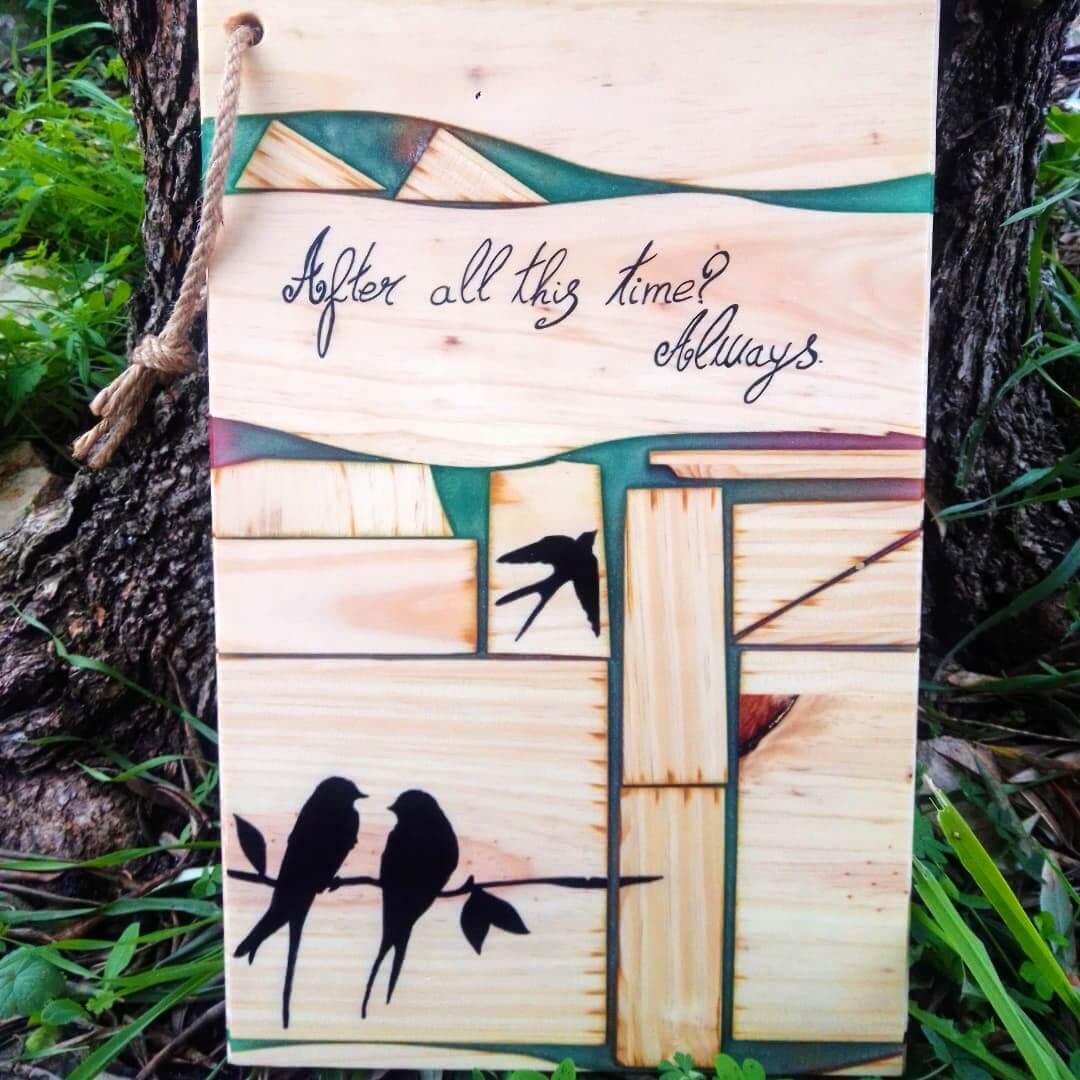 After all this time?
Always.